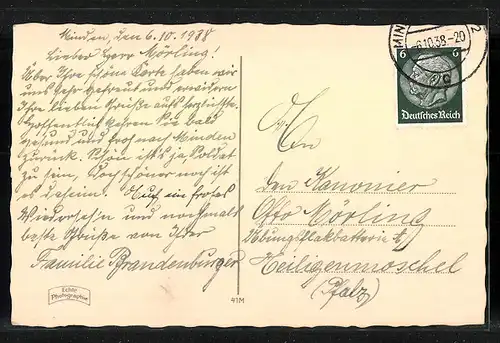 Minden, den 6.10.1938
Lieber Herr Mörling!
Über Ihre schöne Karte haben wir
uns sehr gefreut und erwidern
Ihre lieben Grüße aufs herzlichste.
Hoffentlich kehren Sie bald
gesund und froh nach Minden
zurück. Schön ist's ja, Soldat
zu sein, doch schöner noch ist
es daheim. Auf ein frohes
Wiedersehn und nochmals
beste Grüße von Ihrer
Familie Brandenburger
Echte
Photographie
41M
MIN
6.10.38-20
2
c
6
6
Deutsches Reich
An
den Kanonier
Otto Mörling
Übungsflakbatterie
Heiligenmoschel
(Pfalz)